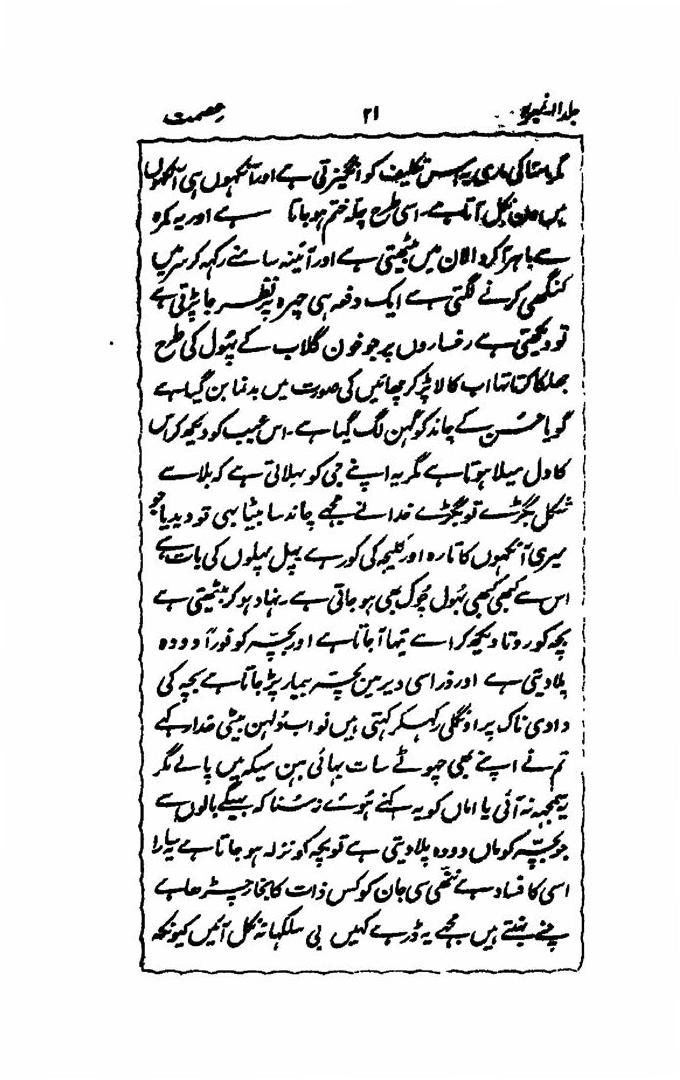 جلد ۱۱ نمبر ۲۱ عصمت
مگر مامتا کی ماری یہ اس تکلیف کو انگیزتی ہے اور آنکھوں ہی آنکھوں
میں دن نکل آتا ہے۔ اسی طرح چلہ ختم ہو جاتا ہے اور یہ کمرہ
سے باہر آکر دالان میں بیٹھتی ہے اور آئینہ سامنے رکھہ کر سر میں
کنگھی کرنے لگتی ہے ایک دفعہ ہی چہرہ پر نظر جا پڑتی ہے
تو دیکھتی ہے رخساروں پر جو خون گلاب کے پہول کی طرح
جھلکا کرتا تہا اب کالا پڑکر جھائیں کی صورت میں بدنما بن گیا ہے
گویا حسن کے چاند کو گہن لگ گیا ہے۔ اس عیب کو دیکھ کر اس
کا دل میلا ہوتا ہے مگر یہ اپنے جی کو بہلاتی ہے کہ بلا سے
شکل بگڑے تو بگڑے خدا نے مجھے چاند سا بیٹا بہی تو دیدیا جو
میری آنکھوں کا تارہ اور کلیجہ کی کور ہے پہل پہلوں کی بات ہے
اس سے کبھی کبھی بہول چوک بہی ہو جاتی ہے۔ نہا دہو کر بیٹھتی ہے
بچہ کو روتا دیکھ کر اسے تہا آجاتا ہے اور بچہ کو فوراً دودہ
پلا دیتی ہے اور ذرا سی دیر میں بچہ بیمار پڑ جاتا ہے بچہ کی
دادی ناک پر اونگلی رکہکر کہتی ہیں نواب دُلہن بیٹی خدا رکہے
تم نے اپنے بھی چہوٹے سات بہائی بہن میکہ میں پالے مگر
یہ سمجہہ نہ آئی یا اماں کو یہ کہتے ہوئے نہ سُنا کہ بہیگے بالوں سے
جو بچہ کو ماں دودہ پلا دیتی ہے تو بچہ کو نزلہ ہو جاتا ہے یہ سارا
اسی کا فساد ہے ننھی سی جان کو کس ذات کا بخار چڑھا ہے
چنے بہنتے ہیں مجھے یہ ڈر ہے کہیں بی نہ نکل آئیں کیونکہ